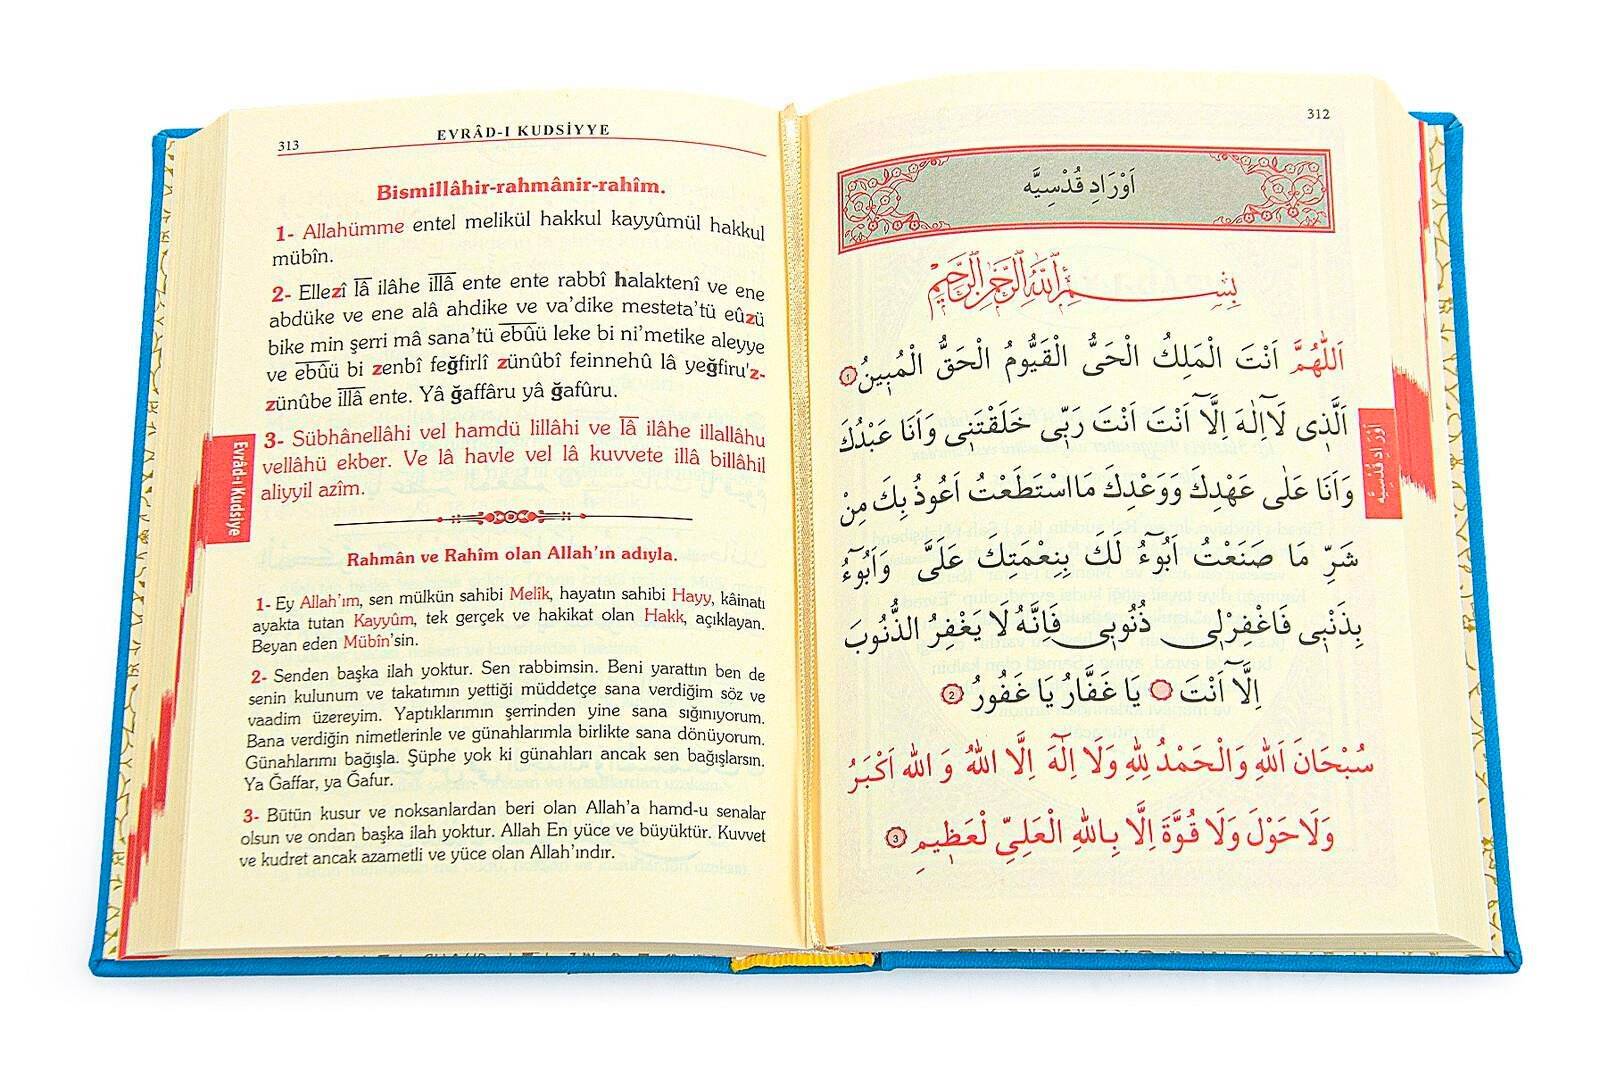 312
اَوْرَادِ قُدْسِيَّه
بِسْمِ اللّٰهِ الرَّحْمٰنِ الرَّحِيمِ
اَللّٰهُمَّ اَنْتَ الْمَلِكُ الْحَىُّ الْقَيُّومُ الْحَقُّ الْمُبِينُ ١
اَلَّذِى لَا اِلٰهَ اِلَّا اَنْتَ اَنْتَ رَبِّى خَلَقْتَنِى وَاَنَا عَبْدُكَ
وَاَنَا عَلٰى عَهْدِكَ وَوَعْدِكَ مَااسْتَطَعْتُ اَعُوذُ بِكَ مِنْ
شَرِّ مَا صَنَعْتُ اَبُوٓءُ لَكَ بِنِعْمَتِكَ عَلَىَّ وَاَبُوٓءُ
بِذَنْبِى فَاغْفِرْلِى ذُنُوبِى فَاِنَّهُ لَا يَغْفِرُ الذُّنُوبَ
اِلَّا اَنْتَ يَا غَفَّارُ يَا غَفُورُ 2
سُبْحَانَ اَللهِ وَالْحَمْدُ لِلهِ وَلَا اِلٰهَ اِلَّا اللهُ وَ الله اَكْبَرُ
وَلَاحَوْلَ وَلَا قُوَّةَ اِلَّا بِاللهِ الْعَلِىِّ لْعَظِيمِ 3
اَوْرَادِ قُدْسِيَّه
313
EVRÂD-I KUDSİYYE
Bismillâhir-rahmânir-rahîm.
1- Allahümme entel melikül hakkul kayyûmül hakkul
mübîn.
2- Ellezî lâ ilâhe illâ ente ente rabbî halaktenî ve ene
abdüke ve ene alâ ahdike ve va'dike mesteta'tü eûzü
bike min şerri mâ sana'tü ebûü leke bi ni'metike aleyye
ve ebûü bi zenbî feğfirlî zünûbî feinnehû lâ yeğfiru'z-
zünûbe illâ ente. Yâ ğaffâru yâ ğafûru.
3- Sübhânellâhi vel hamdü lillâhi ve lâ ilâhe illallâhu
vellâhü ekber. Ve lâ havle vel lâ kuvvete illâ billâhil
aliyyil azîm.
Rahmân ve Rahîm olan Allah'ın adıyla.
1- Ey Allah'ım, sen mülkün sahibi Melîk, hayatın sahibi Hayy, kâinatı
ayakta tutan Kayyûm, tek gerçek ve hakikat olan Hakk, açıklayan.
Beyan eden Mübîn'sin.
2- Senden başka ilah yoktur. Sen rabbimsin. Beni yarattın ben de
senin kulunum ve takatımın yettiği müddetçe sana verdiğim söz ve
vaadim üzereyim. Yaptıklarımın şerrinden yine sana sığınıyorum.
Bana verdiğin nimetlerinle ve günahlarımla birlikte sana dönüyorum.
Günahlarımı bağışla. Şüphe yok ki günahları ancak sen bağışlarsın.
Ya Ğaffar, ya Ğafur.
3- Bütün kusur ve noksanlardan beri olan Allah'a hamd-u senalar
olsun ve ondan başka ilah yoktur. Allah En yüce ve büyüktür. Kuvvet
ve kudret ancak azametli ve yüce olan Allah'ındır.
Evrâd-ı Kudsiye